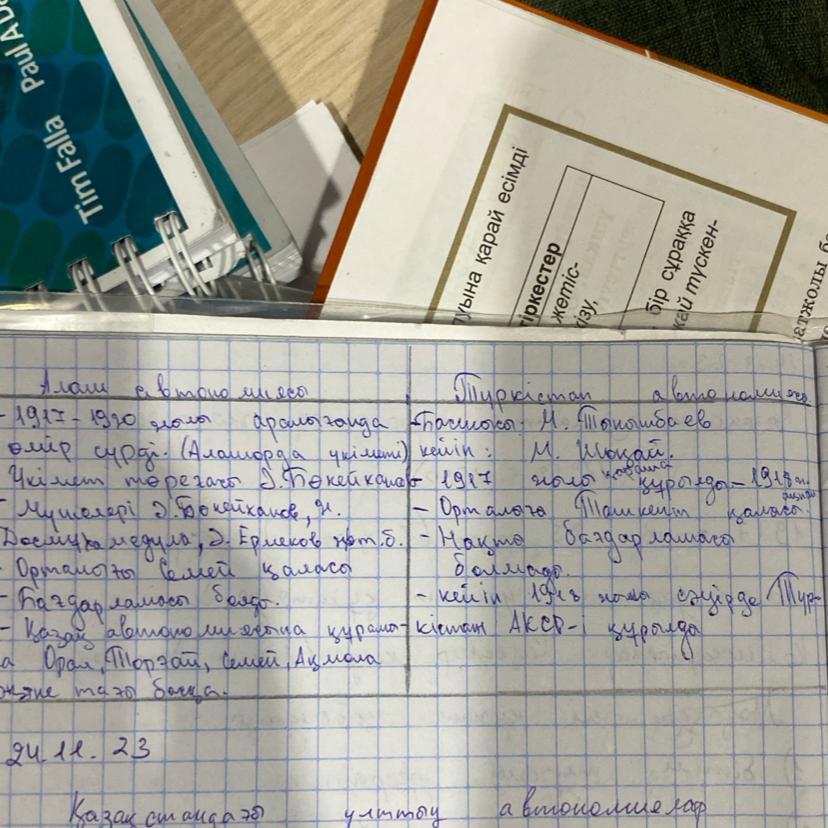 Tim Falla Paul A Da
луына қарай есімді
тіркестер
жетіс-
ізу,
бір сұраққа
кай түскен-
атжолы
Алаш автономиясы
- 1917-1920 жылы аралығында
өмір сүрді. (Алашорда үкіметі)
Үкімет төрағасы Ә.Бөкейханов
- Мүшелері Ә.Бөкейханов, Ж.
Досмұхамедұлы, Ә. Ермеков т.б.
- Орталығы Семей қаласы
- Бағдарламасы болды.
- Қазақ автономиясына құрамы-
а Орал, Торғай, Семей, Ақмола
және тағы басқа.
Түркістан автономиясы
- Басшысы: М. Тынышбаев
кейін: М. Шоқай.
- 1917 жылы қараша құрылды - 1918 ж. ақпан
- Орталығы Ташкент қаласы.
- Нақты бағдарламасы
болмады.
- кейін 1918 жылы сәуірде Түр-
кістан АКСР-і құрылды
24.11.23
Қазақстандағы ұлттық автономиялар